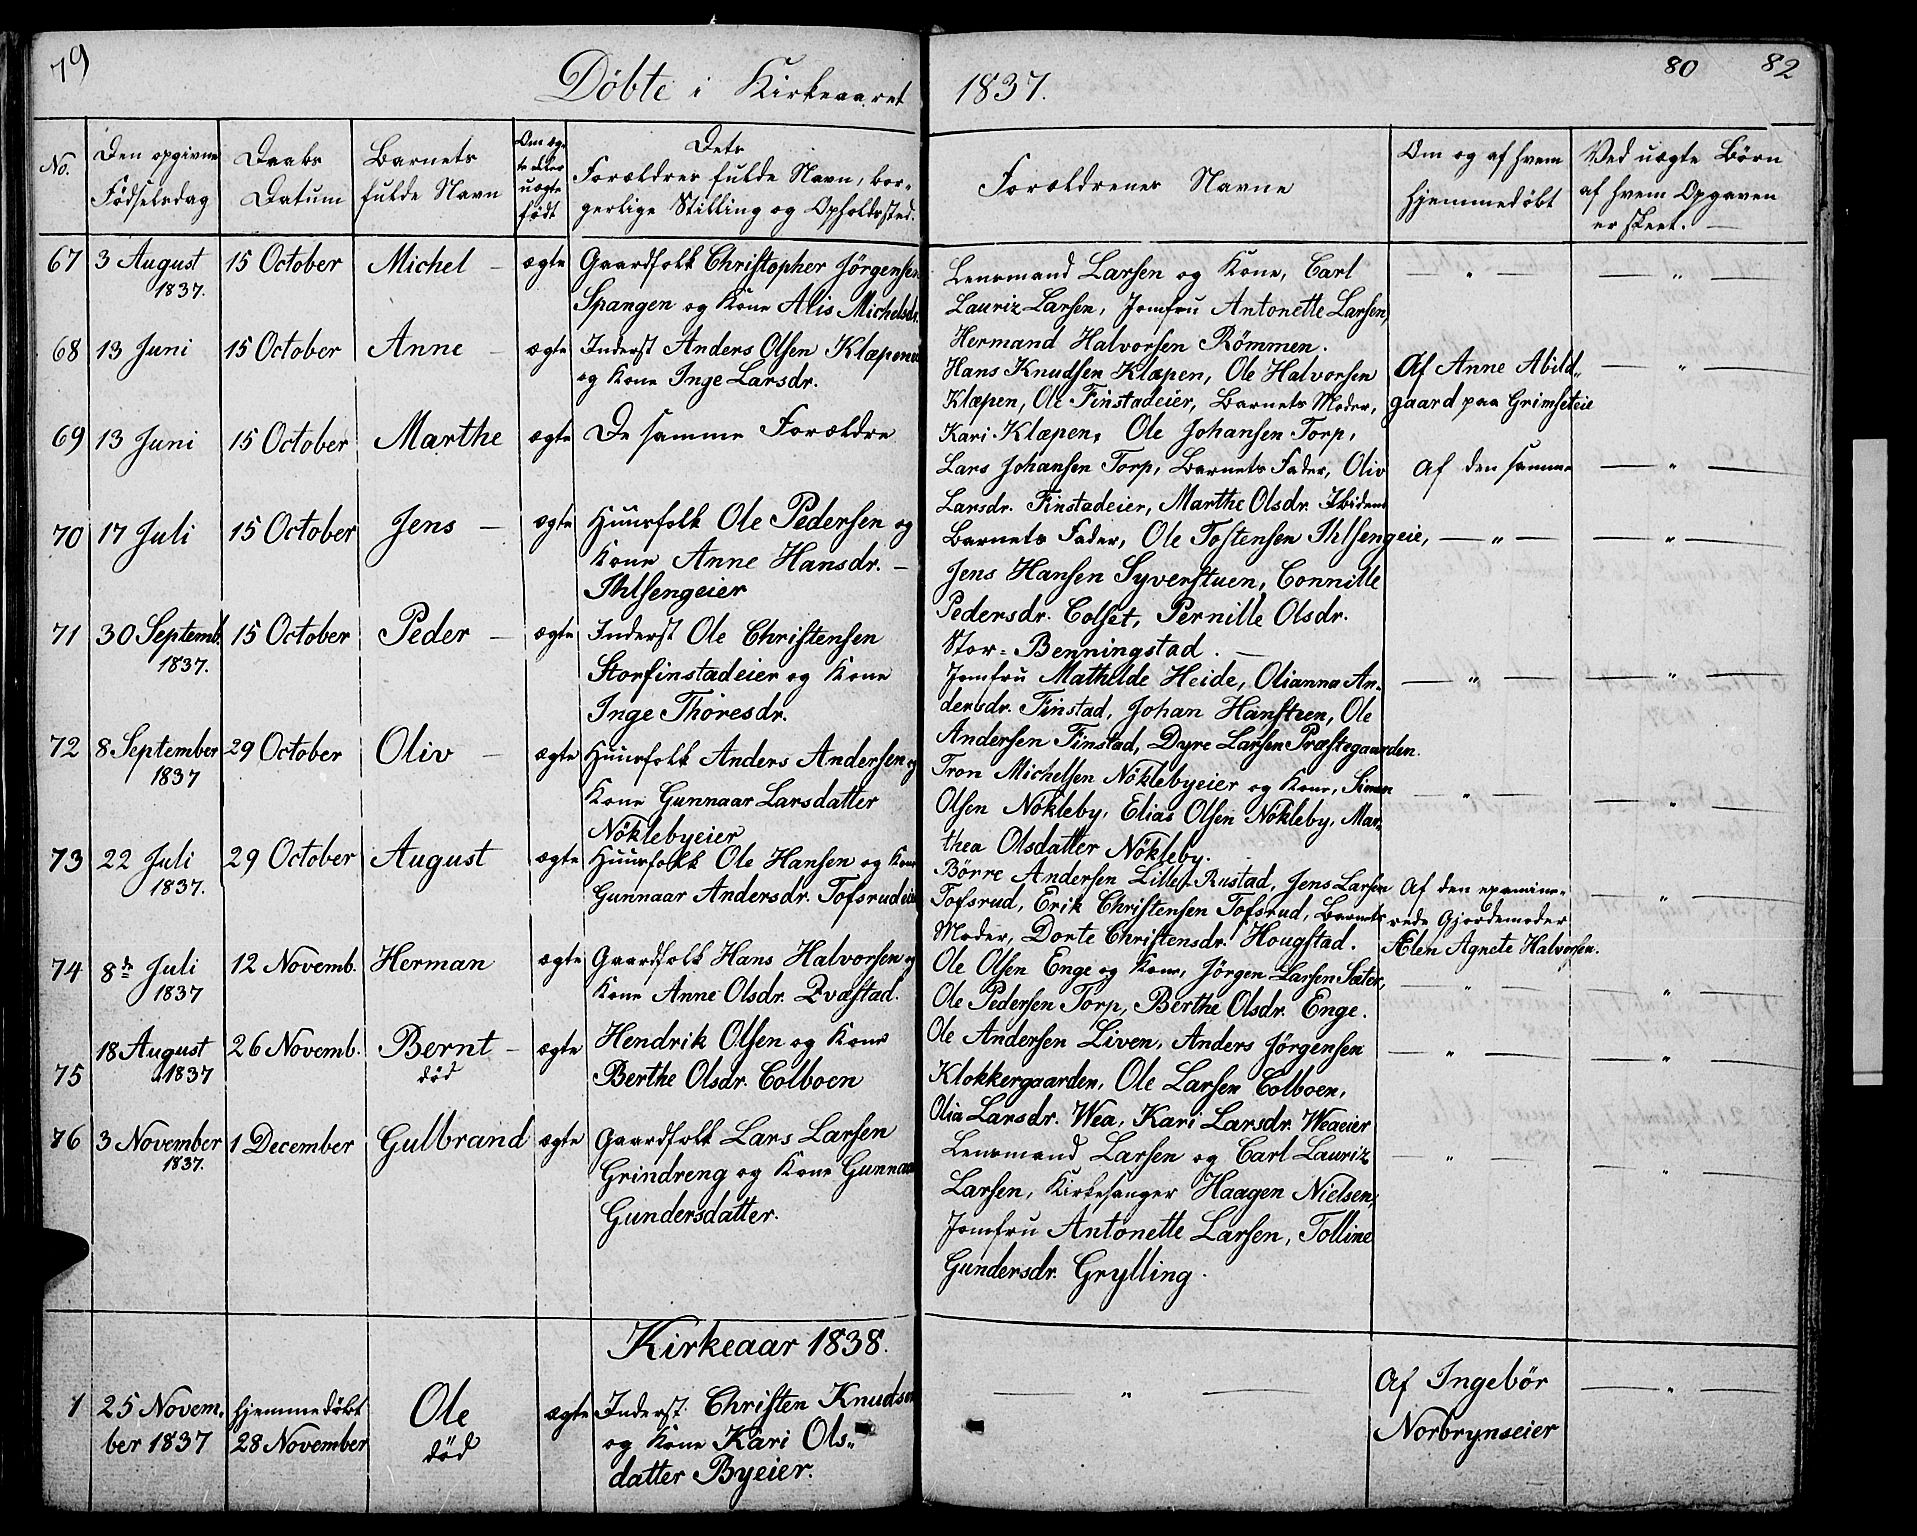 79
Döbte i Kirkeaaret
No.
Den opgivne
Födselsdag
Daabs
Datum
Barnets
fulde Navn
Om æg-
te eller
uægte
födt
Dets
Forældres fulde Navn, bor-
gerlige Stilling og Opholdssted.
67 3 August 15 October Michel — ægte Gaardfolk Christopher Jörgensen
1837.
Spangen og Kone Alis Michelsdr.
68 13 Juni 15 October Anne — ægte Inderst Anders Olsen Klæpen
og Kone Inge Larsdr.
69 13 Juni 15 October Marthe ægte De samme Forældre
70 17 Juli 15 October Jens — ægte Huusfolk Ole Pedersen og
Kone Anne Hansdr. —
Ihlsengeier
71 30 Septemb. 15 October Peder — ægte Inderst Ole Christensen
1837.
Storfinstadeier og Kone
Inge Thoresdr.
72 8 September 29 October Oliv — ægte Huusfolk Anders Andersen og
1837
Kone Gunnaar Larsdatter
Nöklebyeier
73 22 Juli 29 October August ægte Huusfolk Ole Hansen og Kone
1837.
Gunnaar Andersdr. Tofsrudeie
74 8de Juli 12 Novemb. Herman ægte Gaardfolk Hans Halvorsen og
1837
Kone Anne Olsdr. Qvæstad.
75 18 August 26 Novemb. Bernt — ægte Hendrik Olsen og Kone
1837
död
Berthe Olsdr. Colboen
76 3 November 1 December Gulbrand ægte Gaardfolk Lars Larsen
1837.
Grindreng og Kone Gunnaar
Gundersdatter.
Kirkeaar 1838.
1 25 Novem- hjemmedöbt Ole ægte Inderst Christen Knudsen
ber 1837 28 November död og Kone Kari Ols-
datter Byeier.
80 82
1837.
Forældrenes Navne
Om og af hvem
hjemmedöbt
Ved uægte Börn
af hvem Opgaven
er skeet. —
Lensmand Larsen og Kone, Carl — " — — " —
Lauriz Larsen, Jomfru Antonette Larsen,
Hermand Halvorsen Römmen.
Hans Knudsen Klæpen, Ole Halvorsen Af Anne Abild- — " —
Klæpen, Ole Finstadeier, Barnets Moder, gaard paa Grimseteie
Kari Klæpen, Ole Johansen Torp,
Lars Johansen Torp, Barnets Fader, Oliv Af den samme — " —
Larsdr. Finstadeier, Marthe Olsdr. Ibidem
Barnets Fader, Ole Tostensen Ihlsengeie, — " — — " —
Jens Hansen Syverstuen, Connille
Pedersdr. Colset, Pernille Olsdr.
Stor-Benningstad. —
Jomfru Mathilde Heide, Olianna An- — " — — " —
dersdr. Finstad, Johan Hansteen, Ole
Andersen Finstad, Dyre Larsen Præstegaarden.
Tron Michelsen Nöklebyeier og Kone, Simen — " — — " —
Olsen Nökleby, Elias Olsen Nökleby, Mar-
thea Olsdatter Nökleby.
Börre Andersen Lille-Rustad, Jens Larsen Af den examine- — " —
Tofsrud, Erik Christensen Tofsrud, Barnets rede Gjordemoder
Moder, Dorte Christensdr. Hougstad. Ælen Agnete Halvorsen.
Ole Olsen Enge og Kone, Jörgen Larsen Sæter, — " — — " —
Ole Pedersen Torp, Berthe Olsdr. Enge.
Ole Andersen Liven, Anders Jörgensen — " — — " —
Klokkergaarden, Ole Larsen Colboen,
Olia Larsdr. Wea, Kari Larsdr. Weaeier
Lensmand Larsen og Carl Lauriz — " — — " —
Larsen, Kirkesanger Haagen Nielsen,
Jomfru Antonette Larsen, Tolline
Gundersdr. Grylling.
— " — Af Ingebör — " —
Norbrynseier